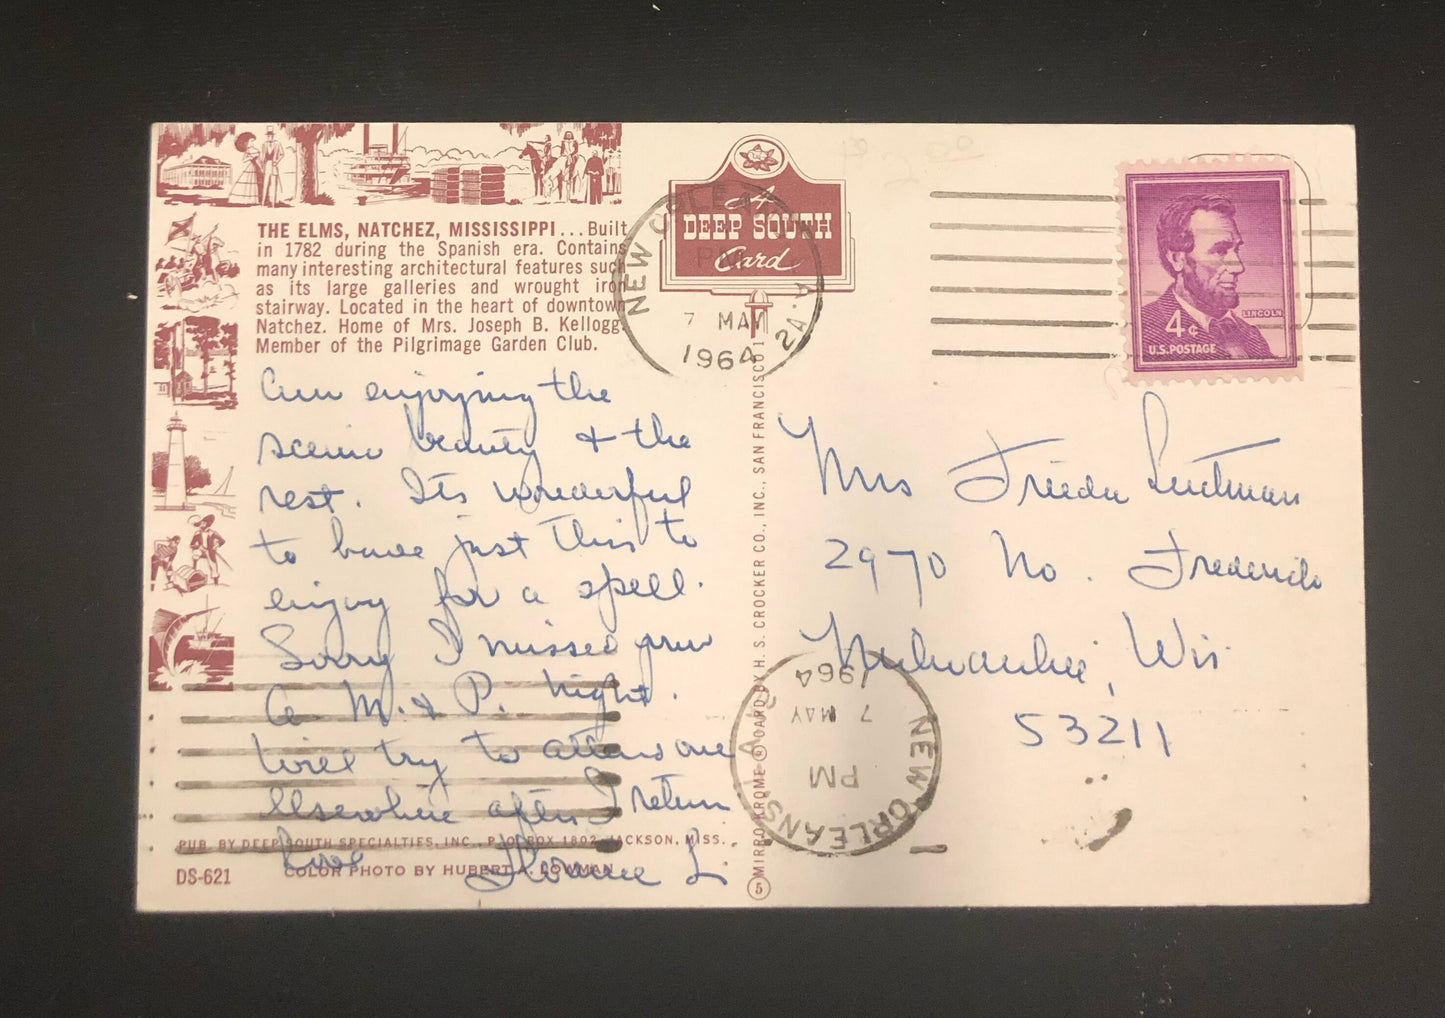 THE ELMS, NATCHEZ, MISSISSIPPI ... Built
in 1782 during the Spanish era. Contains
many interesting architectural features such
as its large galleries and wrought iron
stairway. Located in the heart of downtown
Natchez. Home of Mrs. Joseph B. Kellogg,
Member of the Pilgrimage Garden Club.
A
DEEP SOUTH
Card
NEW ORLEANS, LA.
PM
7 MAY
1964
4¢
LINCOLN
U.S. POSTAGE
Am enjoying the
scenic beauty & the
rest. Its wonderful
to have just this to
enjoy for a spell.
Sorry I missed your
A M. & P. Night.
Will try to attend one
elsewhere after I return
Love Florence L.
Mrs Frieda
2970 No. Frederick
Milwaukee, Wis
53211
NEW ORLEANS, LA.
PM
7 MAY
1964
PUB. BY DEEP SOUTH SPECIALTIES, INC., P.O. BOX 1802, JACKSON, MISS.
DS-621
COLOR PHOTO BY HUBERT A. LOWMAN
5 MIRRO-KROME ® CARD BY H. S. CROCKER CO., INC., SAN FRANCISCO 1